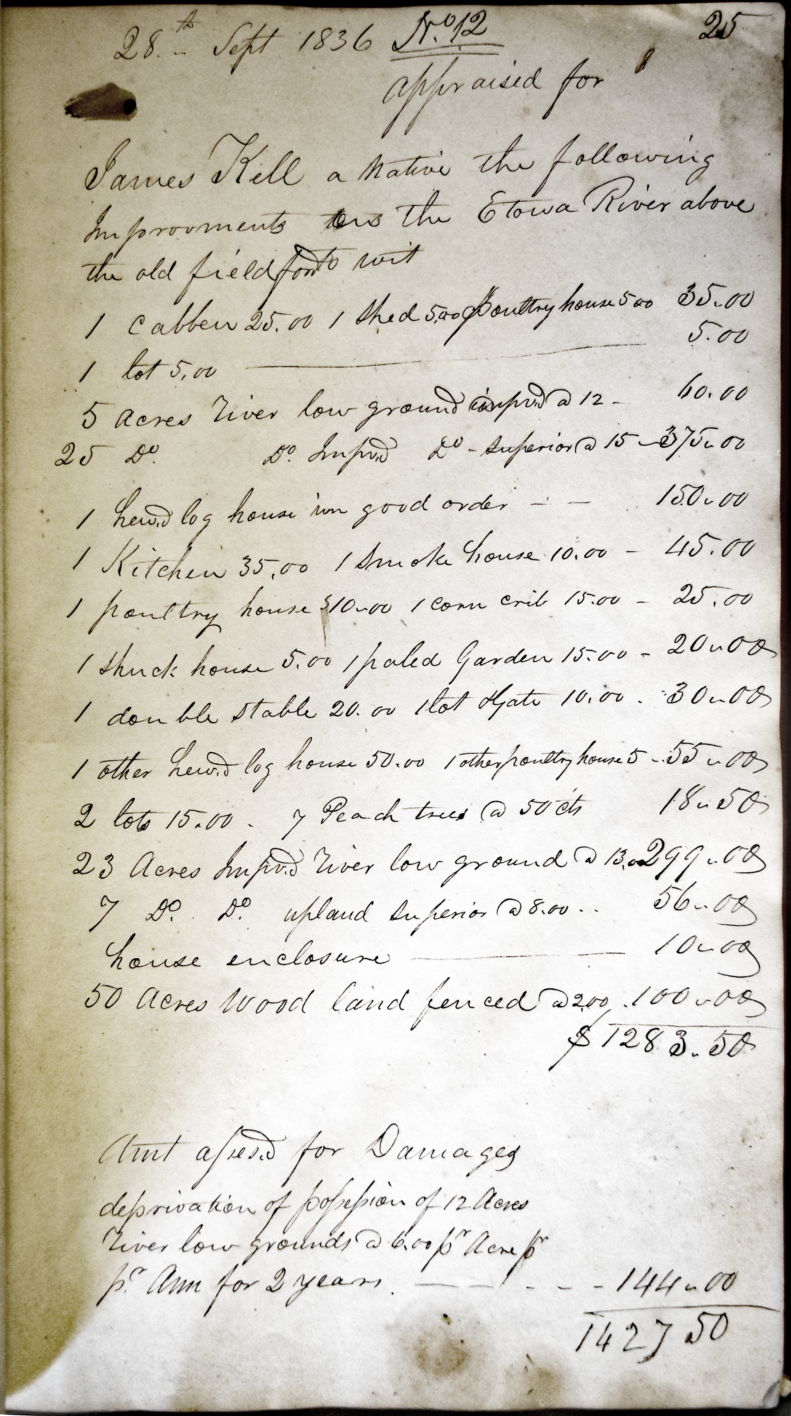 28.th Sept 1836 No.12 25
appraised for
James Kell a native the following
Improovments on the Etowa River above
the old field fort to wit
1 cabben 25.00 1 shed 5.00 poultry house 5.00 35.00
5.00
1 lot 5.00
5 acres River low ground impvd @ 12 - 60.00
25 Do. Do. Impvd Do - superior @ 15 - 375.00
1 hewd log house inn good order - - 150.00
1 Kitchen 35.00 1 Smoke house 10.00 - 45.00
1 poultry house $10.00 1 corn crib 15.00 - 25.00
1 shuck house 5.00 1 paled Garden 15.00 - 20.00
1 double stable 20.00 1 lot & Gate 10.00 . 30.00
1 other hewd log house 50.00 1 other poultry house 5 - 55.00
2 lots 15.00 . 7 Peach trees @ 50 cts 18.50
23 Acres Impvd River low ground @ 13. 299.00
7 Do. Do. upland superior @ 8.00 .. 56.00
house enclosure 10.00
50 Acres Wood land fenced @ 2.00 . 100.00
$1283.50
Amt assesd for Damages
deprivation of possession of 12 Acres
River low grounds @ 6.00 pr Acre pr
pr Ann for 2 years. - - - - 144.00
1427 50